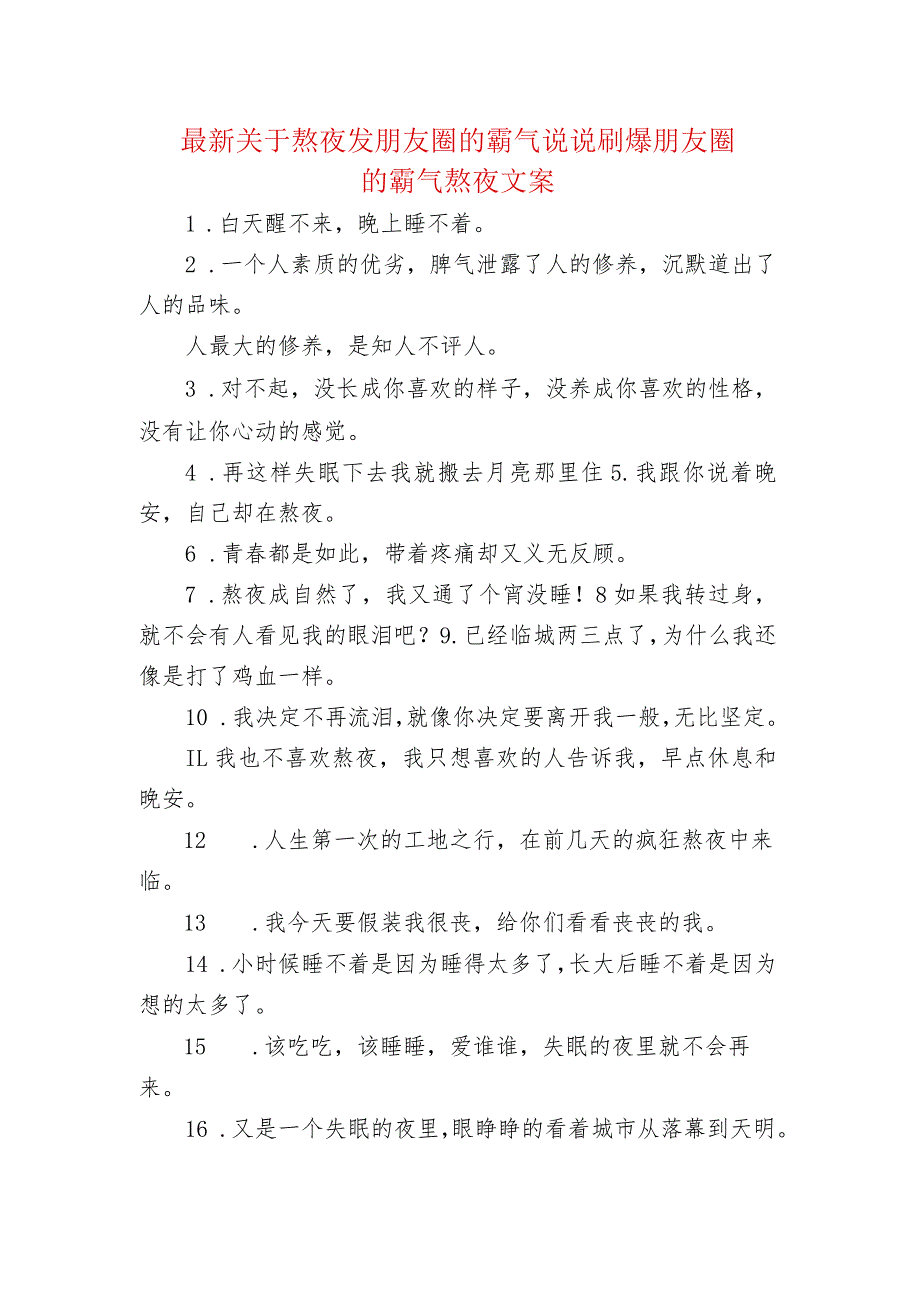 最新关于熬夜发朋友圈的霸气说说刷爆朋友圈
的霸气熬夜文案
1 .白天醒不来，晚上睡不着。
2 .一个人素质的优劣，脾气泄露了人的修养，沉默道出了
人的品味。
人最大的修养，是知人不评人。
3 .对不起，没长成你喜欢的样子，没养成你喜欢的性格，
没有让你心动的感觉。
4 .再这样失眠下去我就搬去月亮那里住5.我跟你说着晚
安，自己却在熬夜。
6 .青春都是如此，带着疼痛却又义无反顾。
7 .熬夜成自然了，我又通了个宵没睡！8如果我转过身，
就不会有人看见我的眼泪吧？9.已经临城两三点了,为什么我还
像是打了鸡血一样。
10 .我决定不再流泪,就像你决定要离开我一般,无比坚定。
IL我也不喜欢熬夜，我只想喜欢的人告诉我，早点休息和
晚安。
12 .人生第一次的工地之行，在前几天的疯狂熬夜中来
临。
13 .我今天要假装我很丧，给你们看看丧丧的我。
14 .小时候睡不着是因为睡得太多了,长大后睡不着是因为
想的太多了。
15 .该吃吃，该睡睡，爱谁谁，失眠的夜里就不会再
来。
16 .又是一个失眠的夜里,眼睁睁的看着城市从落幕到天明。